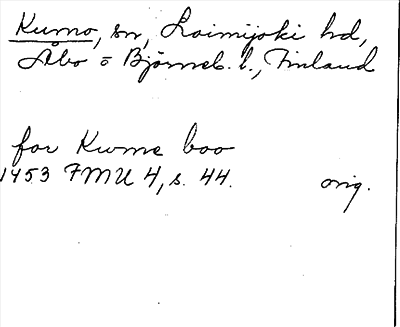 Kumo, sn, Loimijoki hd,
Åbo o Björneb. l., Finland
for Kwme boo
1453 FMU 4, s. 44. orig.